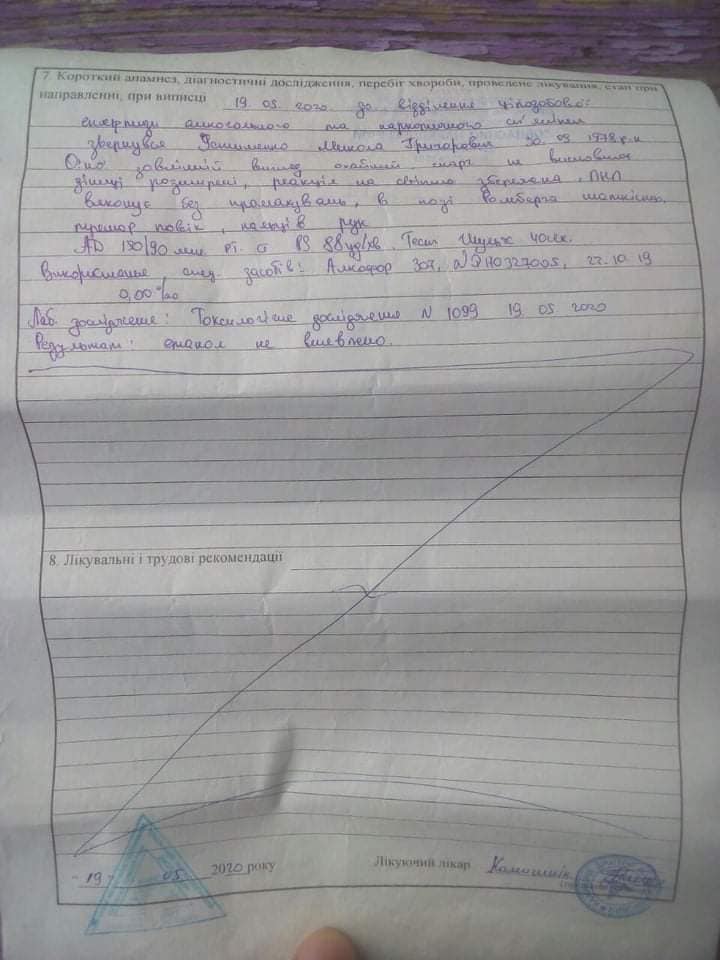 7. Короткий анамнез, діагностичні дослідження, перебіг хвороби, проведене лікування, стан при
направленні, при виписці 19. 05. 2020 до відділення цілодобової
експертизи алкогольного та наркотичного сп'яніння
звернувся Микола Григорович 30. 09 1978 р.н
зовнішній вигляд охайний скарг не висловлює
зіниці розширені, реакція на світло збережена, ПНП
виконує без промахувань, в позі Ромберга
тремор повік, пальців рук
АД 150/90 мм рт. ст PS 88 уд/хв. Тест Шульте 40 сек.
Використання спец. засобів: Алкофор 307, 22. 10 19
0,00 ‰
Лаб. дослідження: Токсилогічне дослідження N 1099 19 05 2020
Результат: етанол не виявлено.
8. Лікувальні і трудові рекомендації
" 19 " 05 2020 року Лікуючий лікар